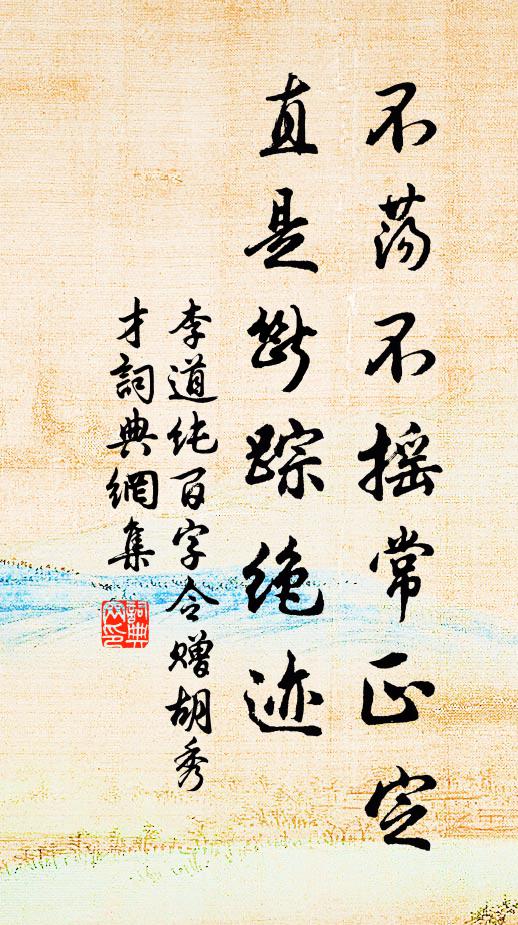 不荡不摇常正定
直是断踪绝迹
李道纯百字令赠胡秀
才詞典網集
詞典